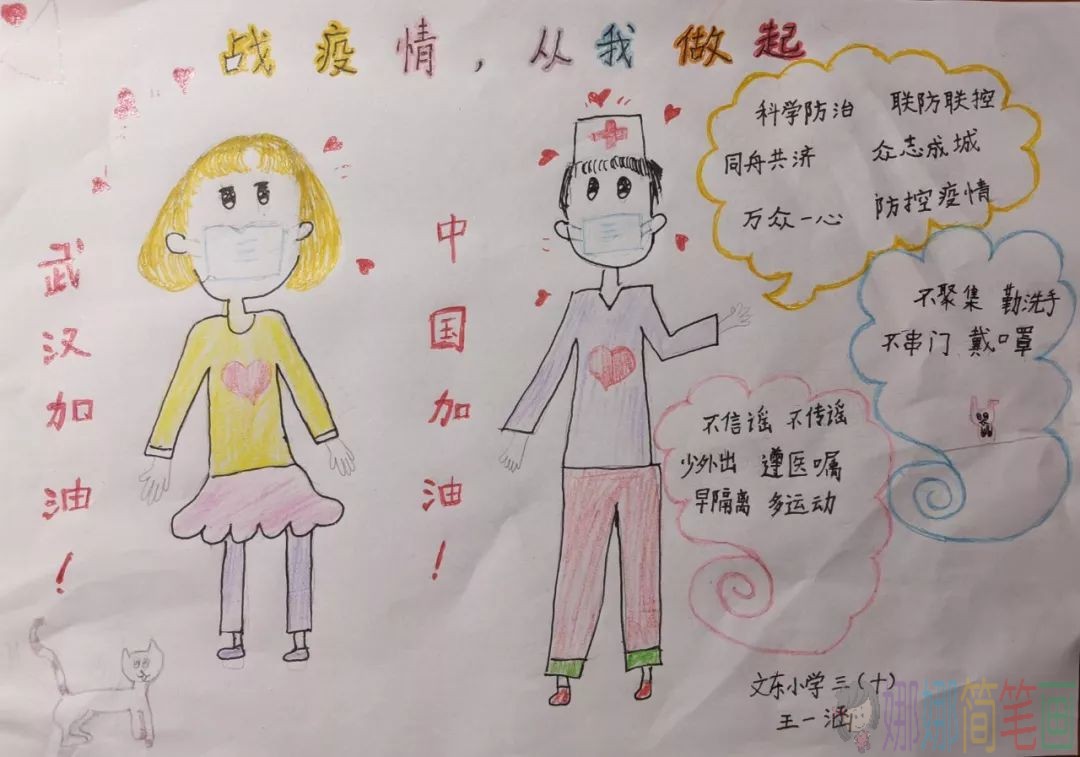 战疫情，从我做起
武汉加油！
中国加油！
科学防治 联防联控
同舟共济 众志成城
万众一心 防控疫情
不聚集 勤洗手
不串门 戴口罩
不信谣 不传谣
少外出 遵医嘱
早隔离 多运动
文东小学三（十）
王一涵
娜娜简笔画